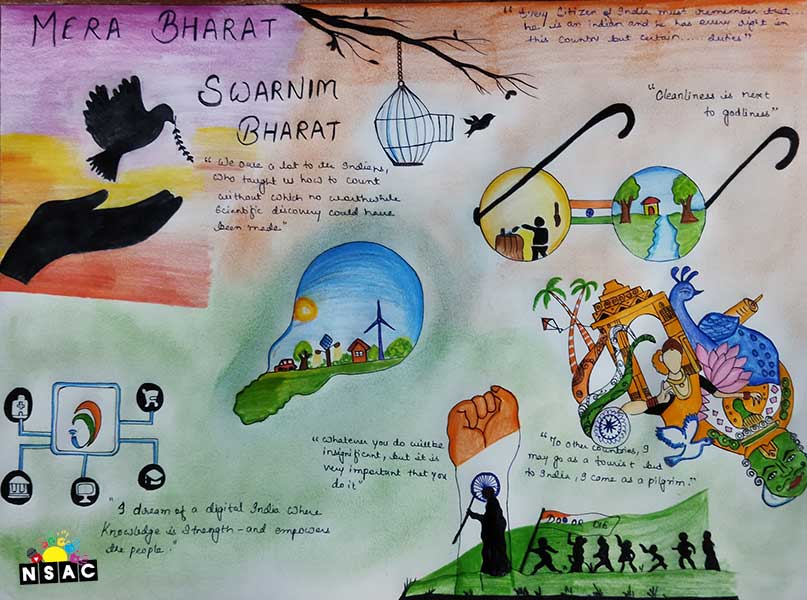 MERA BHARAT
SWARNIM
BHARAT
"Every Citizen of India must remember that
he is an indian and he has every right in
this country but certain..... duties"
"Cleanliness is next
to godliness"
"We owe a lot to the Indians,
who taught us how to count
without which no worthwhile
Scientific discovery could have
been made"
"Whatever you do will be
insignificant, but it is
very important that you
do it"
"To other countries, I
may go as a tourist but
to India, I come as a pilgrim."
"I dream of a digital India where
Knowledge is strength - and empowers
the people."
DO OR DIE
NSAC